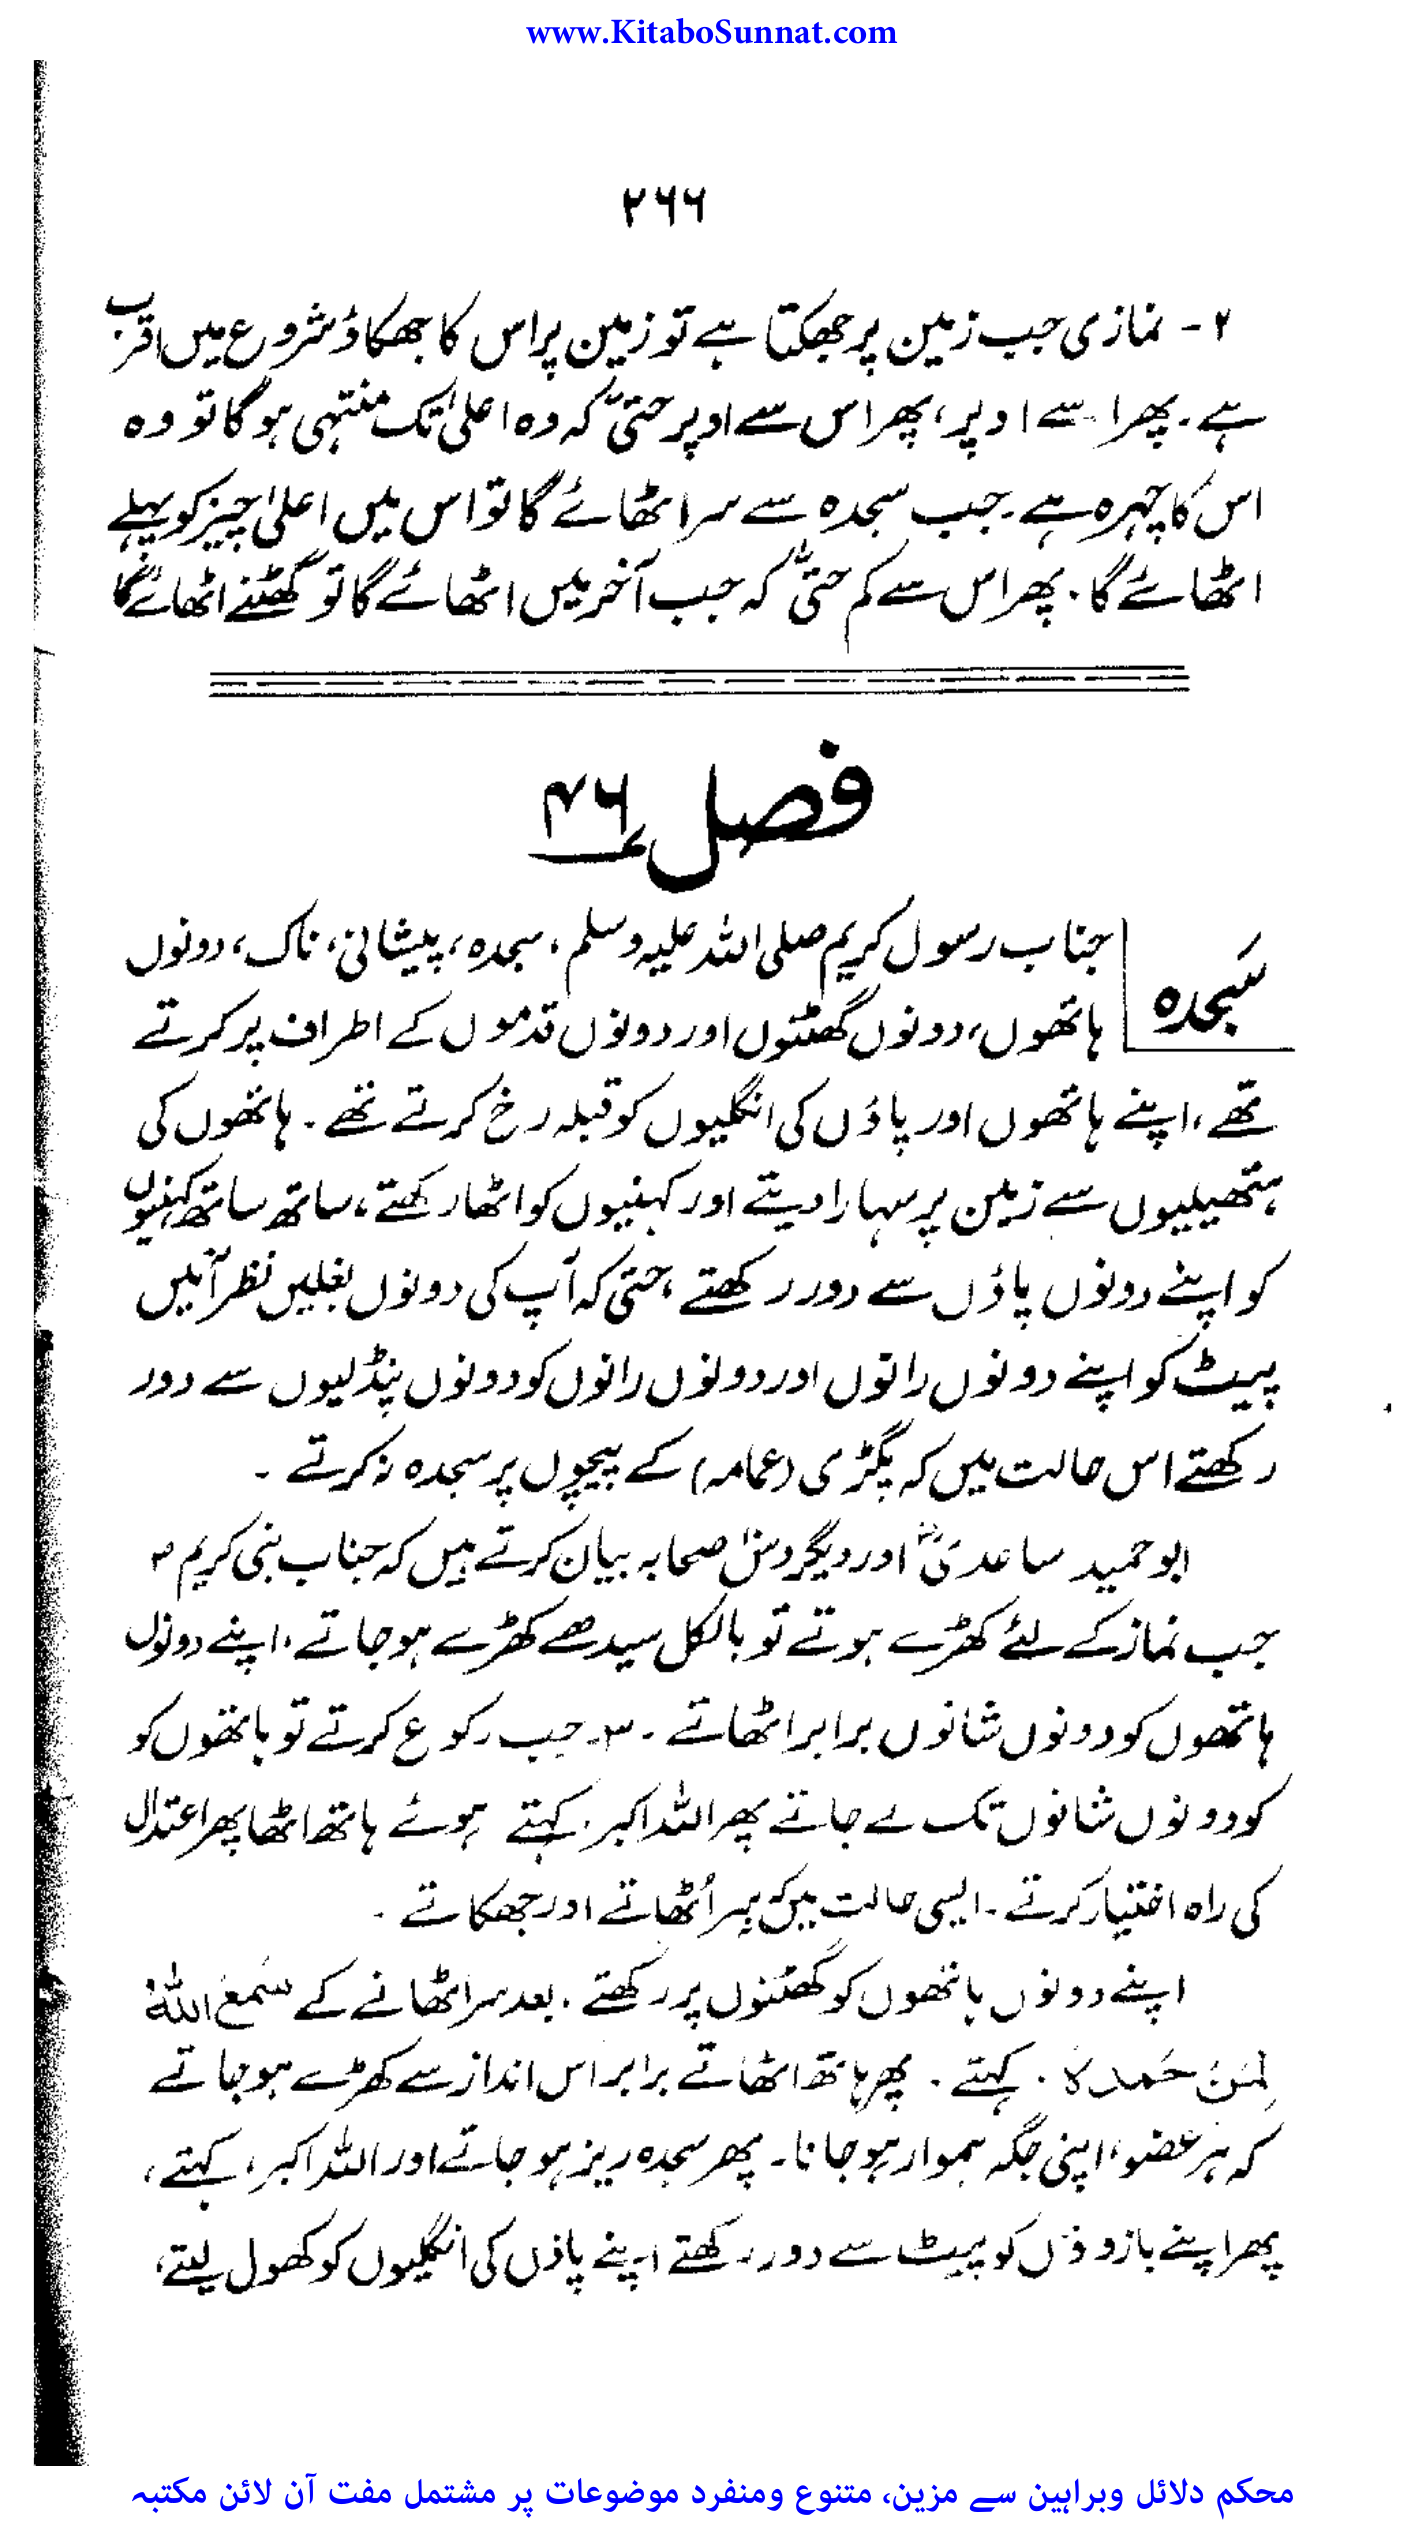 www.KitaboSunnat.com
۲۶۶
۲- نمازی جب زمین پر جھکتا ہے تو زمین پر اس کا جھکاؤ شروع میں اقرب
ہے۔ پھر اسے اوپر، پھر اس سے اوپر حتیٰ کہ وہ اعلیٰ تک منتہی ہو گا تو وہ
اس کا چہرہ ہے۔ جب سجدہ سے سر اٹھائے گا تو اس میں اعلیٰ چیز کو پہلے
اٹھائے گا۔ پھر اس سے کم حتیٰ کہ جب آخر میں اٹھائے گا تو گھٹنے اٹھائے گا
فصل ۴۶
سَجدہ
جناب رسول کریم صلی اللہ علیہ وسلم، سجدہ، پیشانی، ناک، دونوں
ہاتھوں، دونوں گھٹنوں اور دونوں قدموں کے اطراف پر کرتے
تھے، اپنے ہاتھوں اور پاؤں کی انگلیوں کو قبلہ رخ کرتے تھے۔ ہاتھوں کی
ہتھیلیوں سے زمین پر سہارا دیتے اور کہنیوں کو اٹھا رکھتے، ساتھ ساتھ کہنیوں
کو اپنے دونوں پاؤں سے دور رکھتے، حتیٰ کہ آپ کی دونوں بغلیں نظر آئیں
پیٹ کو اپنے دونوں رانوں اور دونوں رانوں کو دونوں پنڈلیوں سے دور
رکھتے اس حالت میں کہ پگڑی (عمامہ) کے پیچوں پر سجدہ نہ کرتے۔
ابو حمید ساعدیؓ اور دیگر دس صحابہ بیان کرتے ہیں کہ جناب نبی کریم ﷺ
جب نماز کے لئے کھڑے ہوتے تو بالکل سیدھے کھڑے ہو جاتے، اپنے دونوں
ہاتھوں کو دونوں شانوں برابر اٹھاتے۔ ۳۔ جب رکوع کرتے تو ہاتھوں کو
کو دونوں شانوں تک لے جاتے پھر اللہ اکبر کہتے ہوئے ہاتھ اٹھا پھر اعتدال
کی راہ اختیار کرتے۔ ایسی حالت میں کہ سر اُٹھاتے اور جھکاتے۔
اپنے دونوں ہاتھوں کو گھٹنوں پر رکھتے۔ بعد سر اٹھانے کے سَمعَ اللہُ
لِمَنْ حَمدہ۔ کہتے۔ پھر ہاتھ اٹھاتے برابر اس انداز سے کھڑے ہو جاتے
کہ ہر عضو، اپنی جگہ ہموار ہو جانا۔ پھر سجدہ ریز ہو جاتے اور اللہ اکبر، کہتے،
پھر اپنے بازوؤں کو پیٹ سے دور رکھتے اپنے پاؤں کی انگلیوں کو کھول لیتے،
محکم دلائل وبراہین سے مزین، متنوع ومنفرد موضوعات پر مشتمل مفت آن لائن مکتبہ